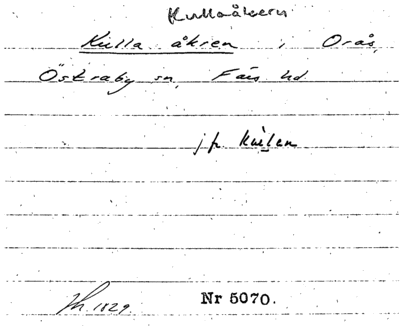 Kullaåkern
Kulla åkren i Orås,
Östraby sn, Färs hd
jfr Kullen
1829. Nr 5070.